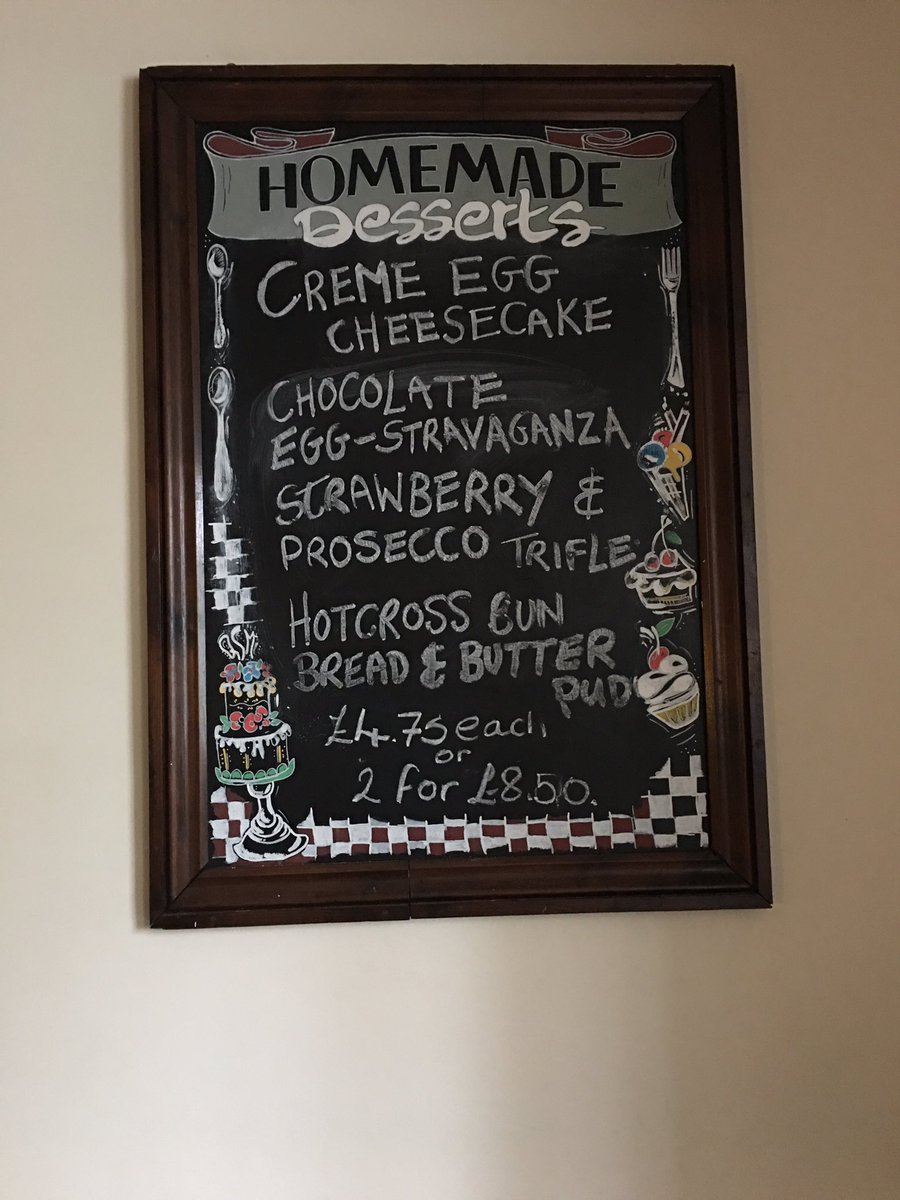 HOMEMADE
Desserts
CREME EGG
CHEESECAKE
CHOCOLATE
EGG-STRAVAGANZA
STRAWBERRY &
PROSECCO TRIFLE
HOTCROSS BUN
BREAD & BUTTER
PUD
£4.75 each
or
2 for £8.50.